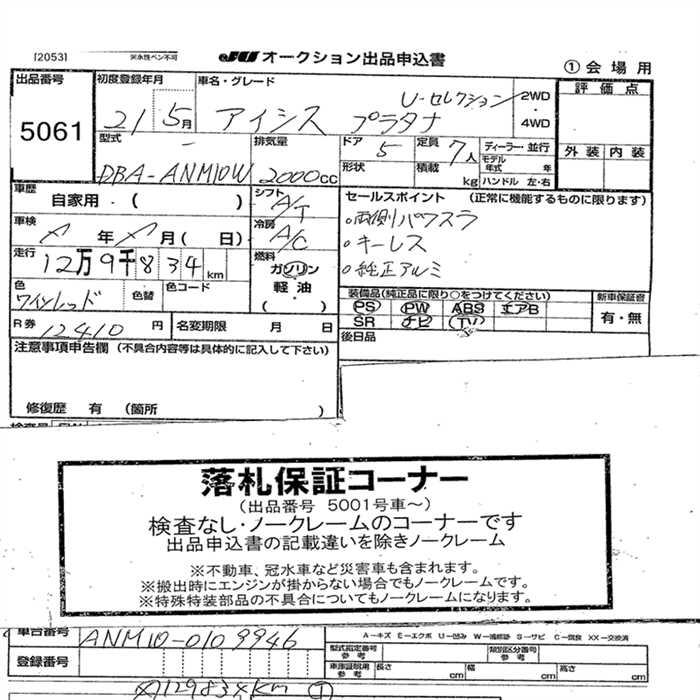 [2053] ※水性ペン不可 JU オークション出品申込書
①会場用
出品番号 初度登録年月 車名・グレード 評価点
5061 21 5月 アイシス プラタナ U-セレクション 2WD 4WD
型式 排気量 ドア 定員 ディーラー・並行 外装 内装
DBA-ANM10W 2000cc 5 7人 モデル年式 年
形状 積載 kg ハンドル 左・右
車歴 自家用・( ) シフト A/T セールスポイント (正常に機能するものに限ります)
車検 年 月( 日) 冷房 A/C ・両側パワスラ
・キーレス
・純正アルミ
走行 12万9千834km 燃料 ガソリン 軽油 ( )
色 ワインレッド 色替 色コード
装備品(純正品に限り○をつけてください) 新車保証書
PS PW ABS エアB 有・無
SR ナビ TV
R券 12410円 名変期限 月 日 後日品
注意事項申告欄 (不具合内容等は具体的に記入して下さい)
修復歴 有 (箇所 )
落札保証コーナー
(出品番号 5001号車~)
検査なし・ノークレームのコーナーです
出品申込書の記載違いを除きノークレーム
※不動車、冠水車など災害車も含まれます。
※搬出時にエンジンが掛からない場合でもノークレームです。
※特殊特装部品の不具合についてもノークレームになります。
車台番号 ANM10-0109946
A-キズ E-エクボ U-凹み W-補修跡 S-サビ C-腐食 XX-交換済
登録番号 型式指定番号 参考 類別区分番号 参考
車庫証明用 参考 長さ cm 幅 cm 高さ cm
129834km ①